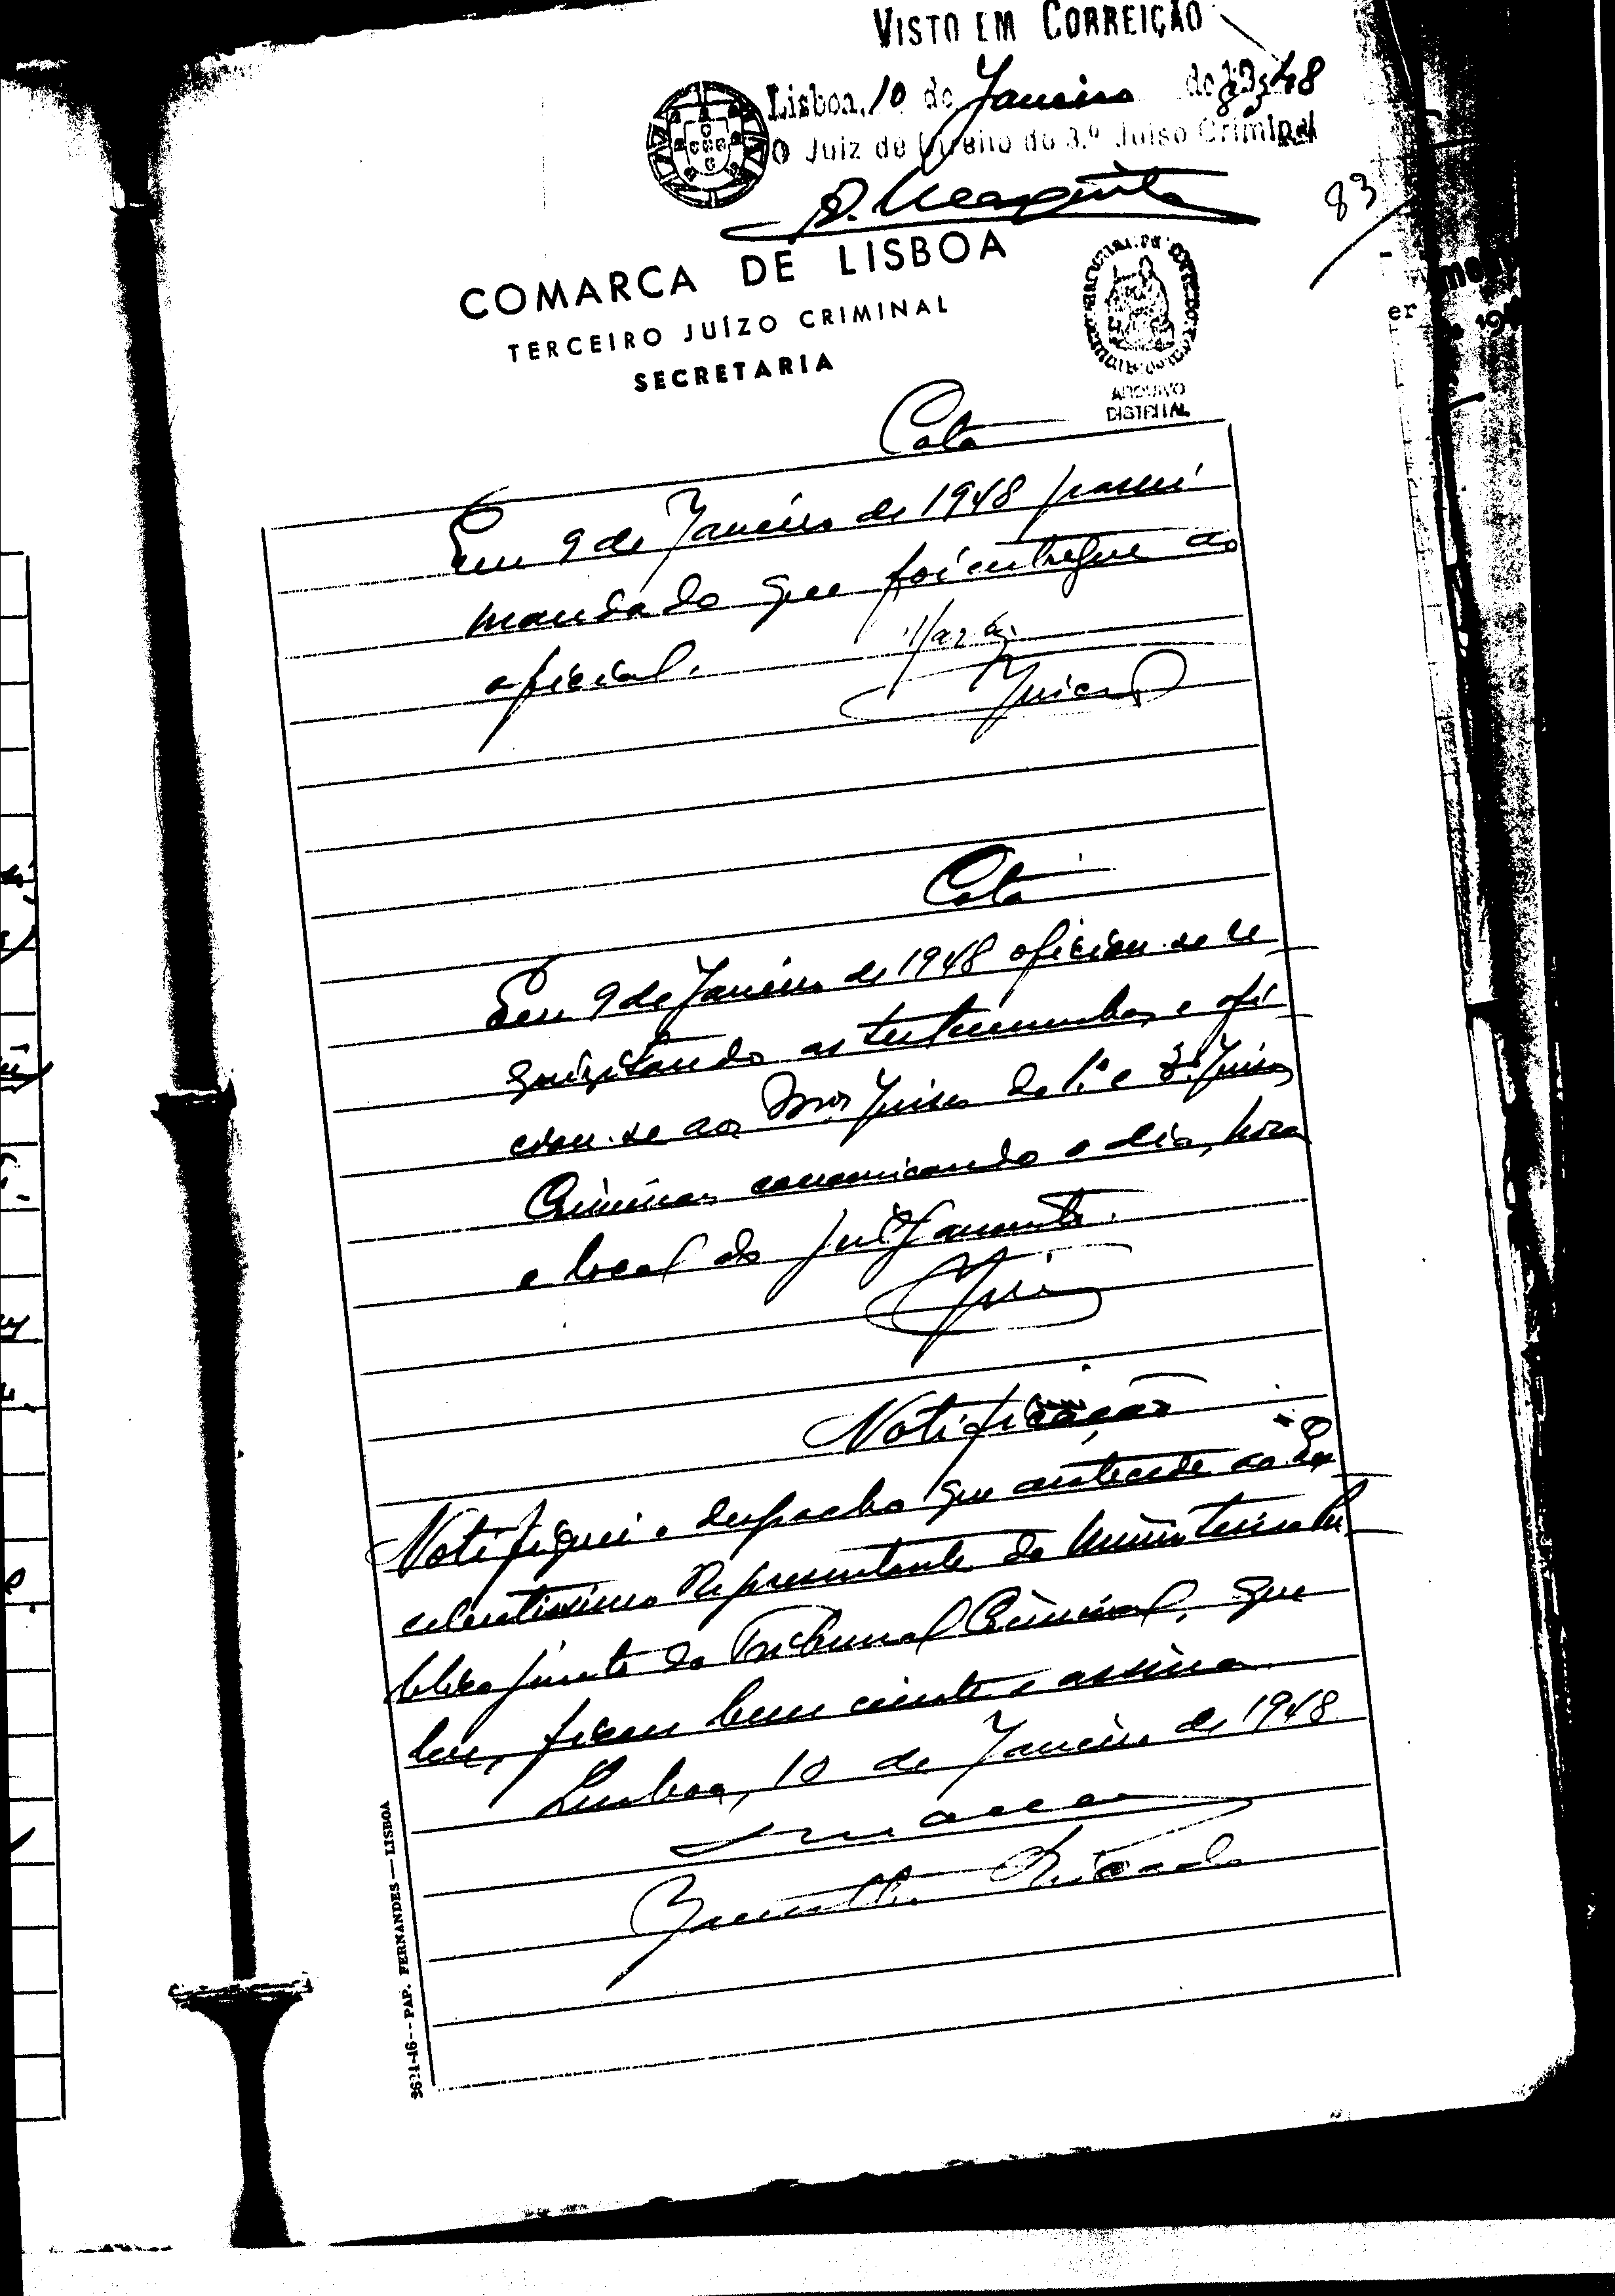 VISTO EM CORREIÇÃO
Lisboa, 10 de Janeiro de 1948
O Juiz de Direito do 3.º Juíso Criminal
83
COMARCA DE LISBOA
TERCEIRO JUÍZO CRIMINAL
SECRETARIA
ARQUIVO
DISTRITAL
Cota
Em 9 de Janeiro de 1948 passei
mandado que foi entregue ao
oficial.
Cota
Em 9 de Janeiro de 1948 oficiou-se re
quisitando as testemunhas e ofi-
ciou-se aos Juises do 1.º e Juisos
Criminais comunicando o dia, hora
e local do julgamento.
Notificação
Notifiquei o despacho que antecede ao Ex
celentissimo Representante do Ministerio Pu
blico junto do Tribunal Criminal, que
leu, ficou bem ciente e assina.
Lisboa, 10 de Janeiro de 1948
3621-46 -- PAP. FERNANDES — LISBOA